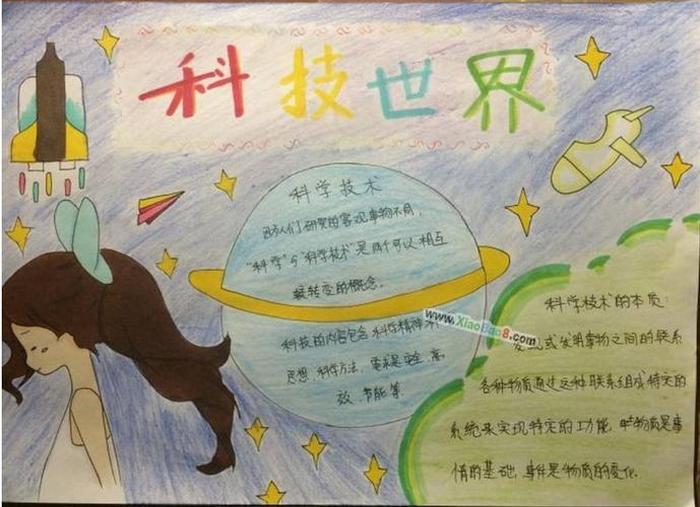 科技世界
科学技术
因人们研究的客观事物不同,
"科学"与"科学技术"是两个可以相互
转变的概念。
科技的内容包含科学精神、
思想、科学方法、需求是安全、高
效、节能等
www.XiaoBao8.com
科学技术的本质:
发现或发明事物之间的联系
各种物质通过这种联系组成特定的
系统来实现特定的功能,物质是事
情的基础,事件是物质的变化.